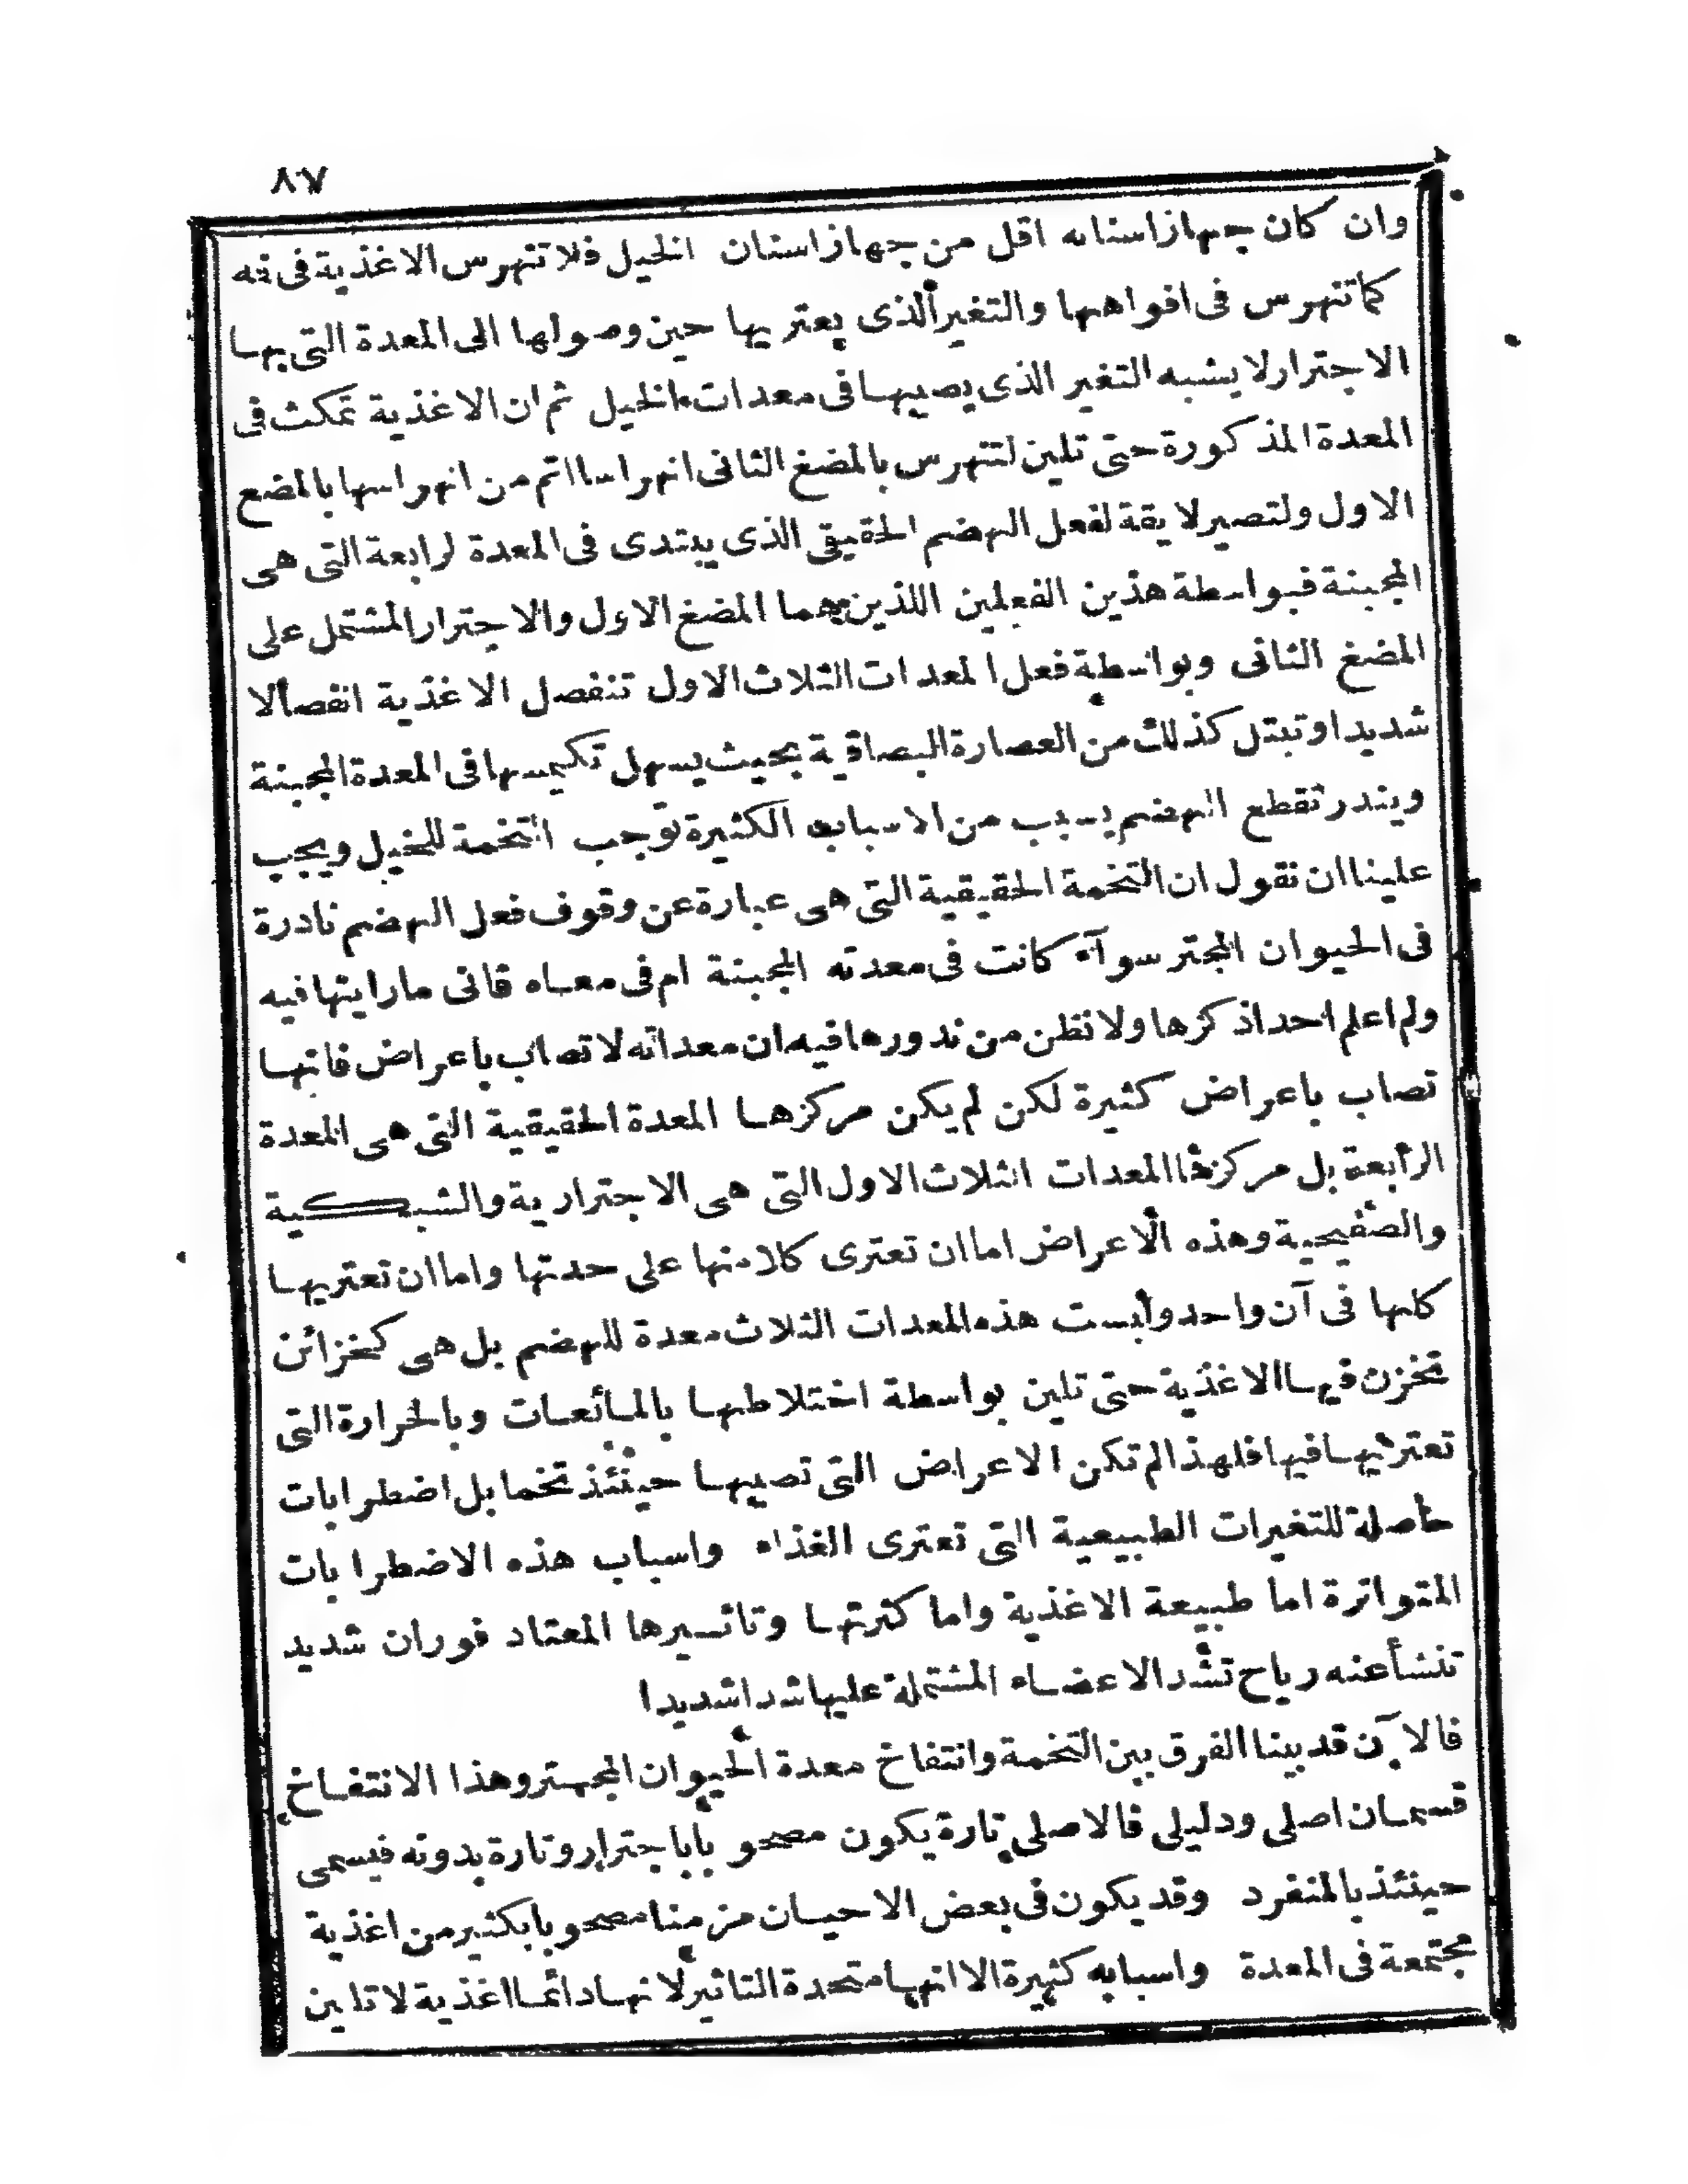 ٨٧
وان كان جهاز اسنانه اقل من جهاز اسنان الخيل فلا تنهرس الاغذية فى فه
كما تنهرس فى افواهها والتغير الذى يعتريها حين وصولها الى المعدة التى بها
الاجترار لا يشبه التغير الذى يصيبها فى معدات الخيل ثم ان الاغذية تمكث فى
المعدة المذكورة حتى تلين لتنهرس بالمضغ الثانى انهراسا اتم من انهراسها بالمضغ
الاول ولتصير لايقة لفعل الهضم الحقيقى الذى يبتدى فى المعدة لرابعة التى هى
المجبنة فبواسطة هذين الفعلين اللذين هما المضغ الاول والاجترار المشتمل على
المضغ الثانى وبواسطة فعل المعدات الثلاث الاول تنفصل الاغذية انفصالا
شديدا وتبتل كذلك من العصارة البصاقية بحيث يسهل تكيمسها فى المعدة المجبنة
ويندر تقطع الهضم بسبب من الاسباب الكثيرة توجب التخمة للخيل ويجب
علينا ان نقول ان التخمة الحقيقية التى هى عبارة عن وقوف فعل الهضم نادرة
فى الحيوان المجتر سوآء كانت فى معدته المجبنة ام فى معاه فانى ما رايتها فيه
ولم اعلم احدا ذكرها ولا نظن من ندورها فيه ان معداته لا تصاب باعراض فانها
تصاب باعراض كثيرة لكن لم يكن مركزها المعدة الحقيقية التى هى المعدة
الرابعة بل مركزها المعدات الثلاث الاول التى هى الاجترارية والشبكية
والصفيحية وهذه الاعراض اما ان تعترى كلا منها على حدتها واما ان تعتريها
كلها فى آن واحد وليست هذه المعدات الثلاث معدة للهضم بل هى كخزائن
تخزن فيها الاغذية حتى تلين بواسطة اختلاطها بالمائعات وبالحرارة التى
تعتريها فيها فلهذا لم تكن الاعراض التى تصيبها حينئذ تخما بل اضطرابات
حاصلة للتغيرات الطبيعية التى تعترى الغذاء واسباب هذه الاضطرابات
المتواترة اما طبيعة الاغذية واما كثرتها وتاثيرها المعتاد فوران شديد
تنشأ عنه رياح تشد الاعضاء المشتملة عليها شدا شديدا
فالآن قد بينا الفرق بين التخمة وانتفاخ معدة الحيوان المجتر وهذا الانتفاخ
قسمان اصلى ودليلى فالاصلى تارة يكون مصحوبا باجترار وتارة بدونه فيسمى
حينئذ بالمنفرد وقد يكون فى بعض الاحيان مزمنا مصحوبا بكثير من اغذية
مجتمعة فى المعدة واسبابه كثيرة الا انها متحدة التاثير لانها دائما اغذية لا تلين